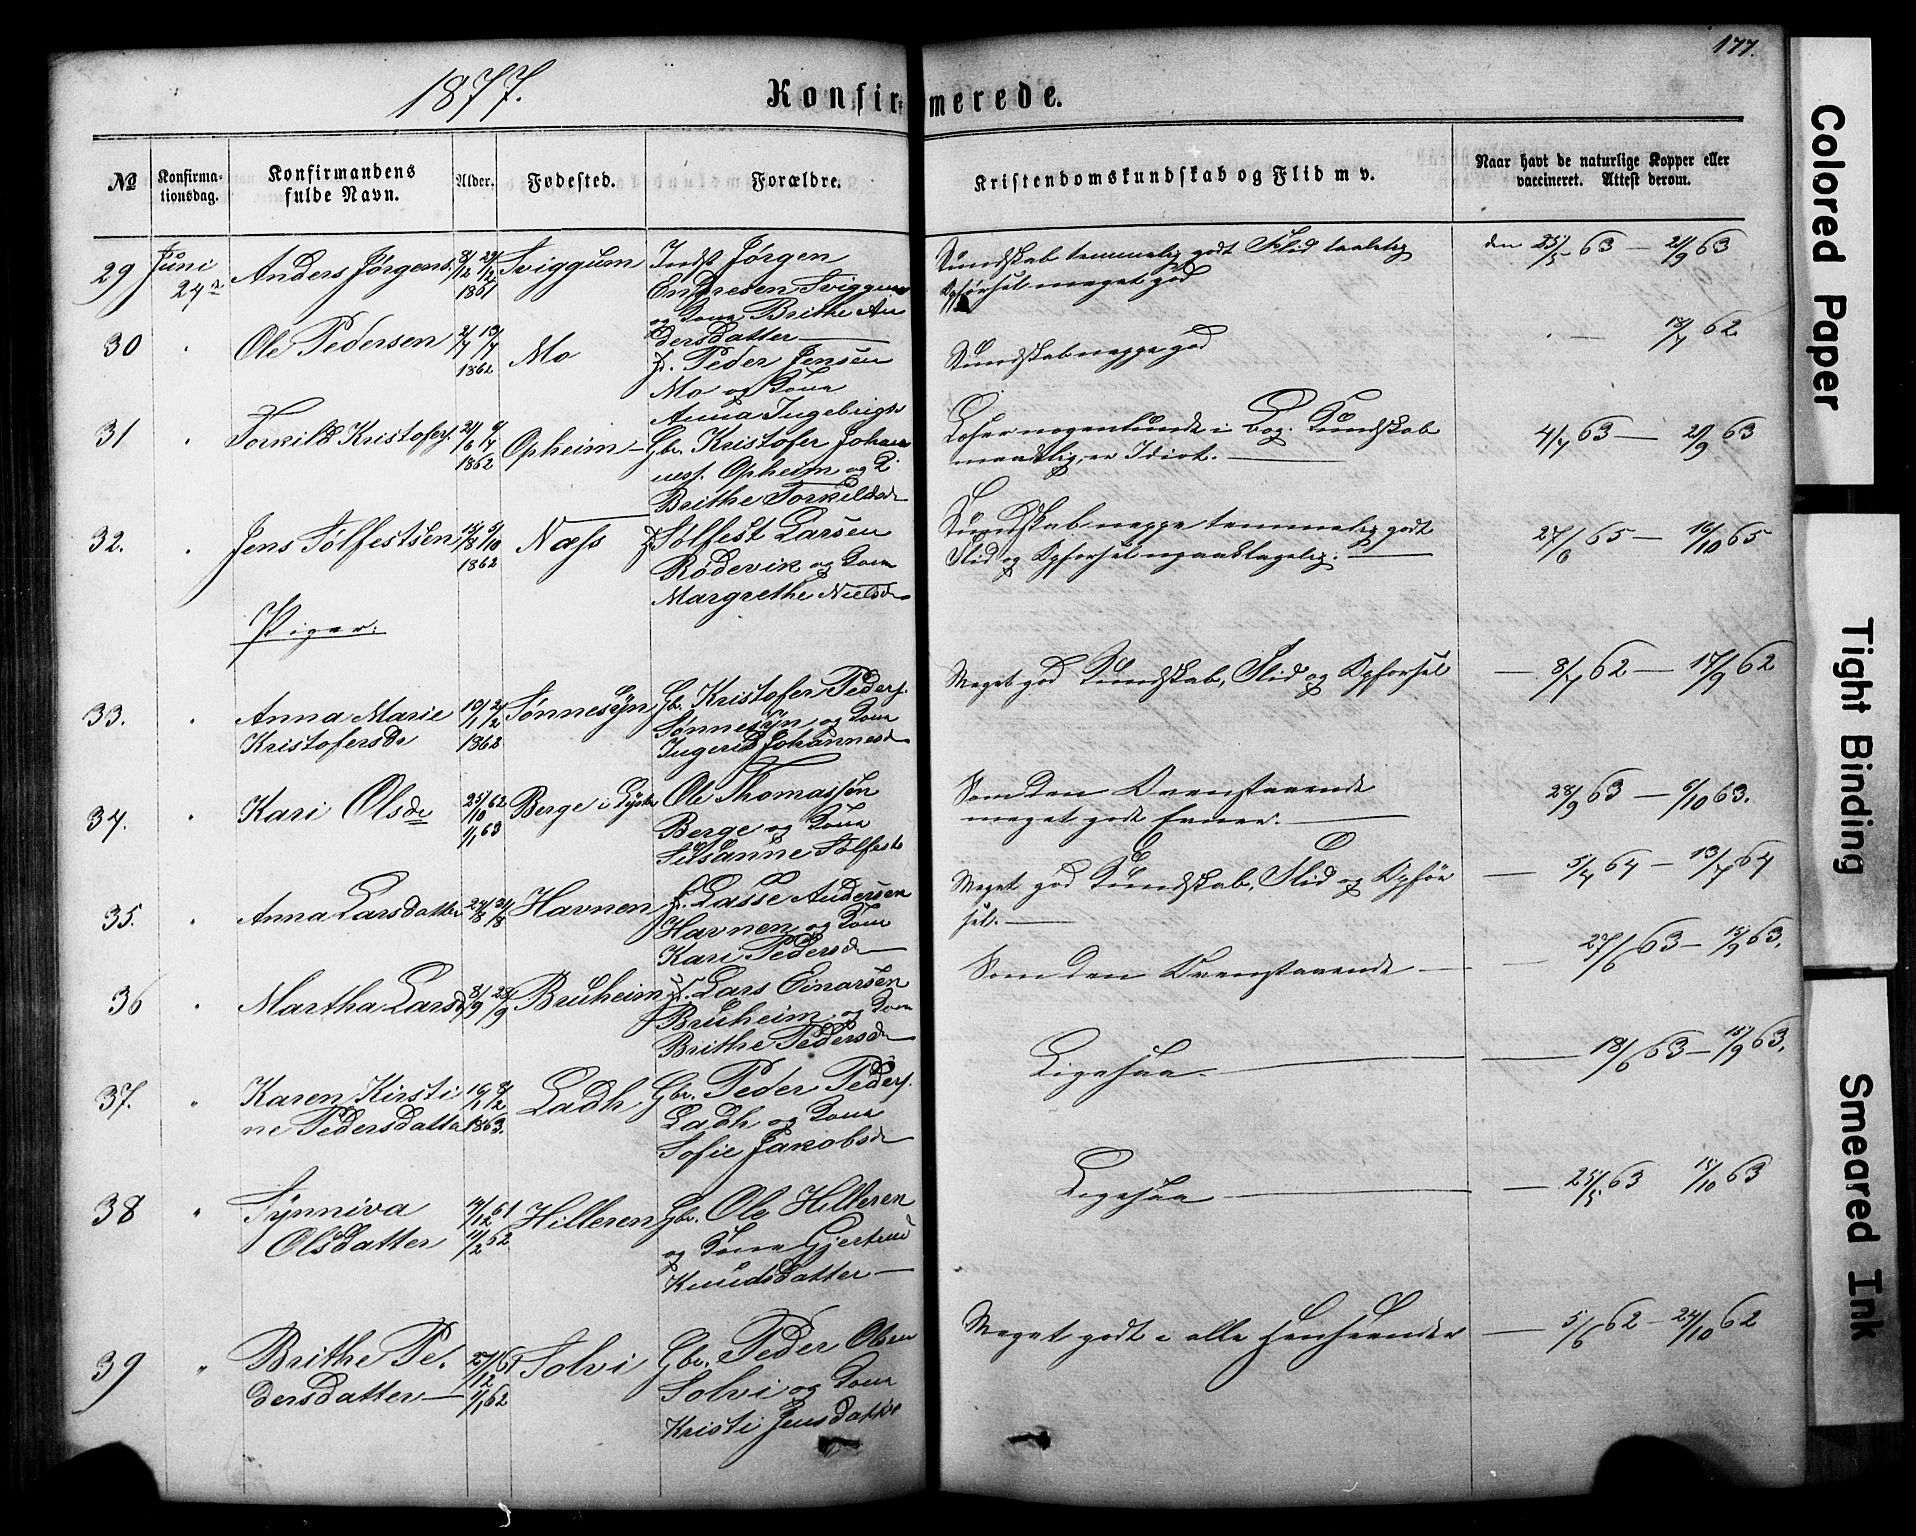 177.
1877.
Konfirmerede.
№ Konfirmationsdag. Konfirmandens fulde Navn. Alder. Fødested. Forældre. Kristendomskundskab og Flid m v. Naar havt de naturlige Kopper eller vaccineret. Attest derom.
29 Juni 24de Anders Jørgens. 1861 Sviggum Indst Jørgen
Endresen Sviggum
og Kone Brithe An
dersdatter
Kundskab temmelig godt Flid taalelig
Opførsel meget god
den 25/5 63 — 21/9 63
30 " Ole Pedersen 2/7 13/7 1862 Mo f. Peder Jensen
Mo og Kone
Anna Ingebrigts
Kundskab neppe god
18/7 62
31 Torkild Kristofers. 1862 Opheim Gbr. Kristofer Johan
nesf. Opheim og K.
Brithe Torkildsd
Læser nogenlunde i Bog. Kundskab
maadelig, er Idiot.
4/7 63 — 21/9 63
32. " Jens Sølfestsen 15/8 5/10 1862 Næss f Sølfest Larsen
Rødevik og Kone
Margrethe Nielsd
Kundskab neppe temmelig godt
Flid og Opførsel upaaklagelig.
27/6 65 — 16/10 65
Piger:
33. " Anna Marie
Kristofersdr 19/1 2/2 1862 Sønnesyn Gbr. Kristofer Peders.
Sønnesyn og Kone
Ingerid Johannesd
Meget god Kundskab, Flid og Opførsel
— 8/7 62 — 17/9 62
34. " Kari Olsdr 25/10 62 1/1 63 Berge i Lyster Ole Thomassen
Berge og Kone
Susanne Sølfests
Som den Ovenstaaende
meget gode Evner.
28/9 63 — 6/10 63.
35. " Anna Larsdatter 27/8 31/8 Havnen f. Lasse Andersen
Havnen og Kone
Kari Pedersd
Meget god Kundskab, Flid og Opfør
sel.
— 5/7 64 — 13/7 64
36 " Martha Larsd 8/9 23/9 Bruheim f. Lars Einarsen
Bruheim og Kone
Brithe Pedersd
Som den Ovenstaaende
— 27/6 63 — 15/9 63.
37. " Karen Kirsti
ne Pedersdatter 16/1 8/2 1863. Ladh. Gbr. Peder Peders.
Ladh og Kone
Sofie Jakobsd
Ligesaa
— 18/6 63 — 15/9 63.
38 " Synniva
Olsdatter 19/12 61 11/2 62 Hilleren Gbr. Ole Hilleren
og Kone Gjertrud
Knudsdatter
Ligesaa
— 25/5 63 15/10 63
39 " Brithe Pe.
dersdatter 27/12 61 1/1 62 Solvi Gbr. Peder Olsen
Solvi og Kone
Kristi Jensdatter
Meget godt i alle Henseender
— 5/6 62 — 24/10 62
Colored Paper
Tight Binding
Smeared Ink